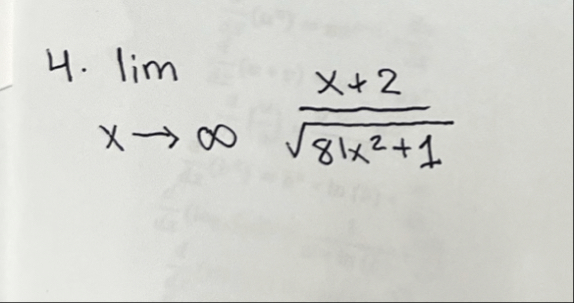 4. lim x+2
x→∞ √81x²+1